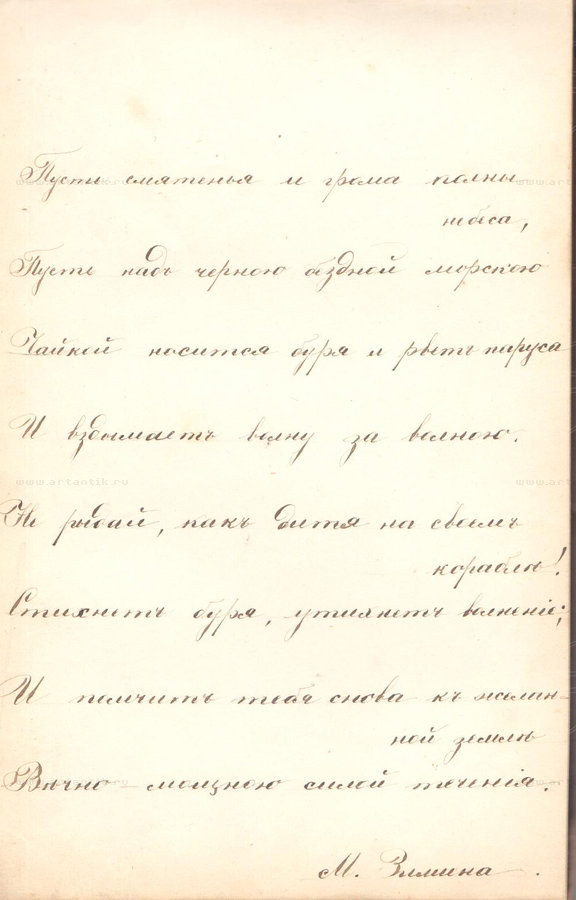 Пусть смятенья и грома полны
небеса,
Пусть надъ черною бездной морскою
Чайкой носится буря и рветъ паруса
И вздымаетъ волну за волною.
Не рыдай, какъ дитя на своемъ
кораблѣ!
Стихнетъ буря, утихнетъ волненіе;
И помчитъ тебя снова къ желан-
ной землѣ
Вѣчно мощною силой теченія.
М. Зимина.
www.artantik.ru